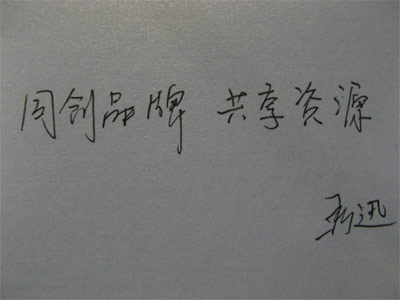 同创品牌 共享资源
新迅